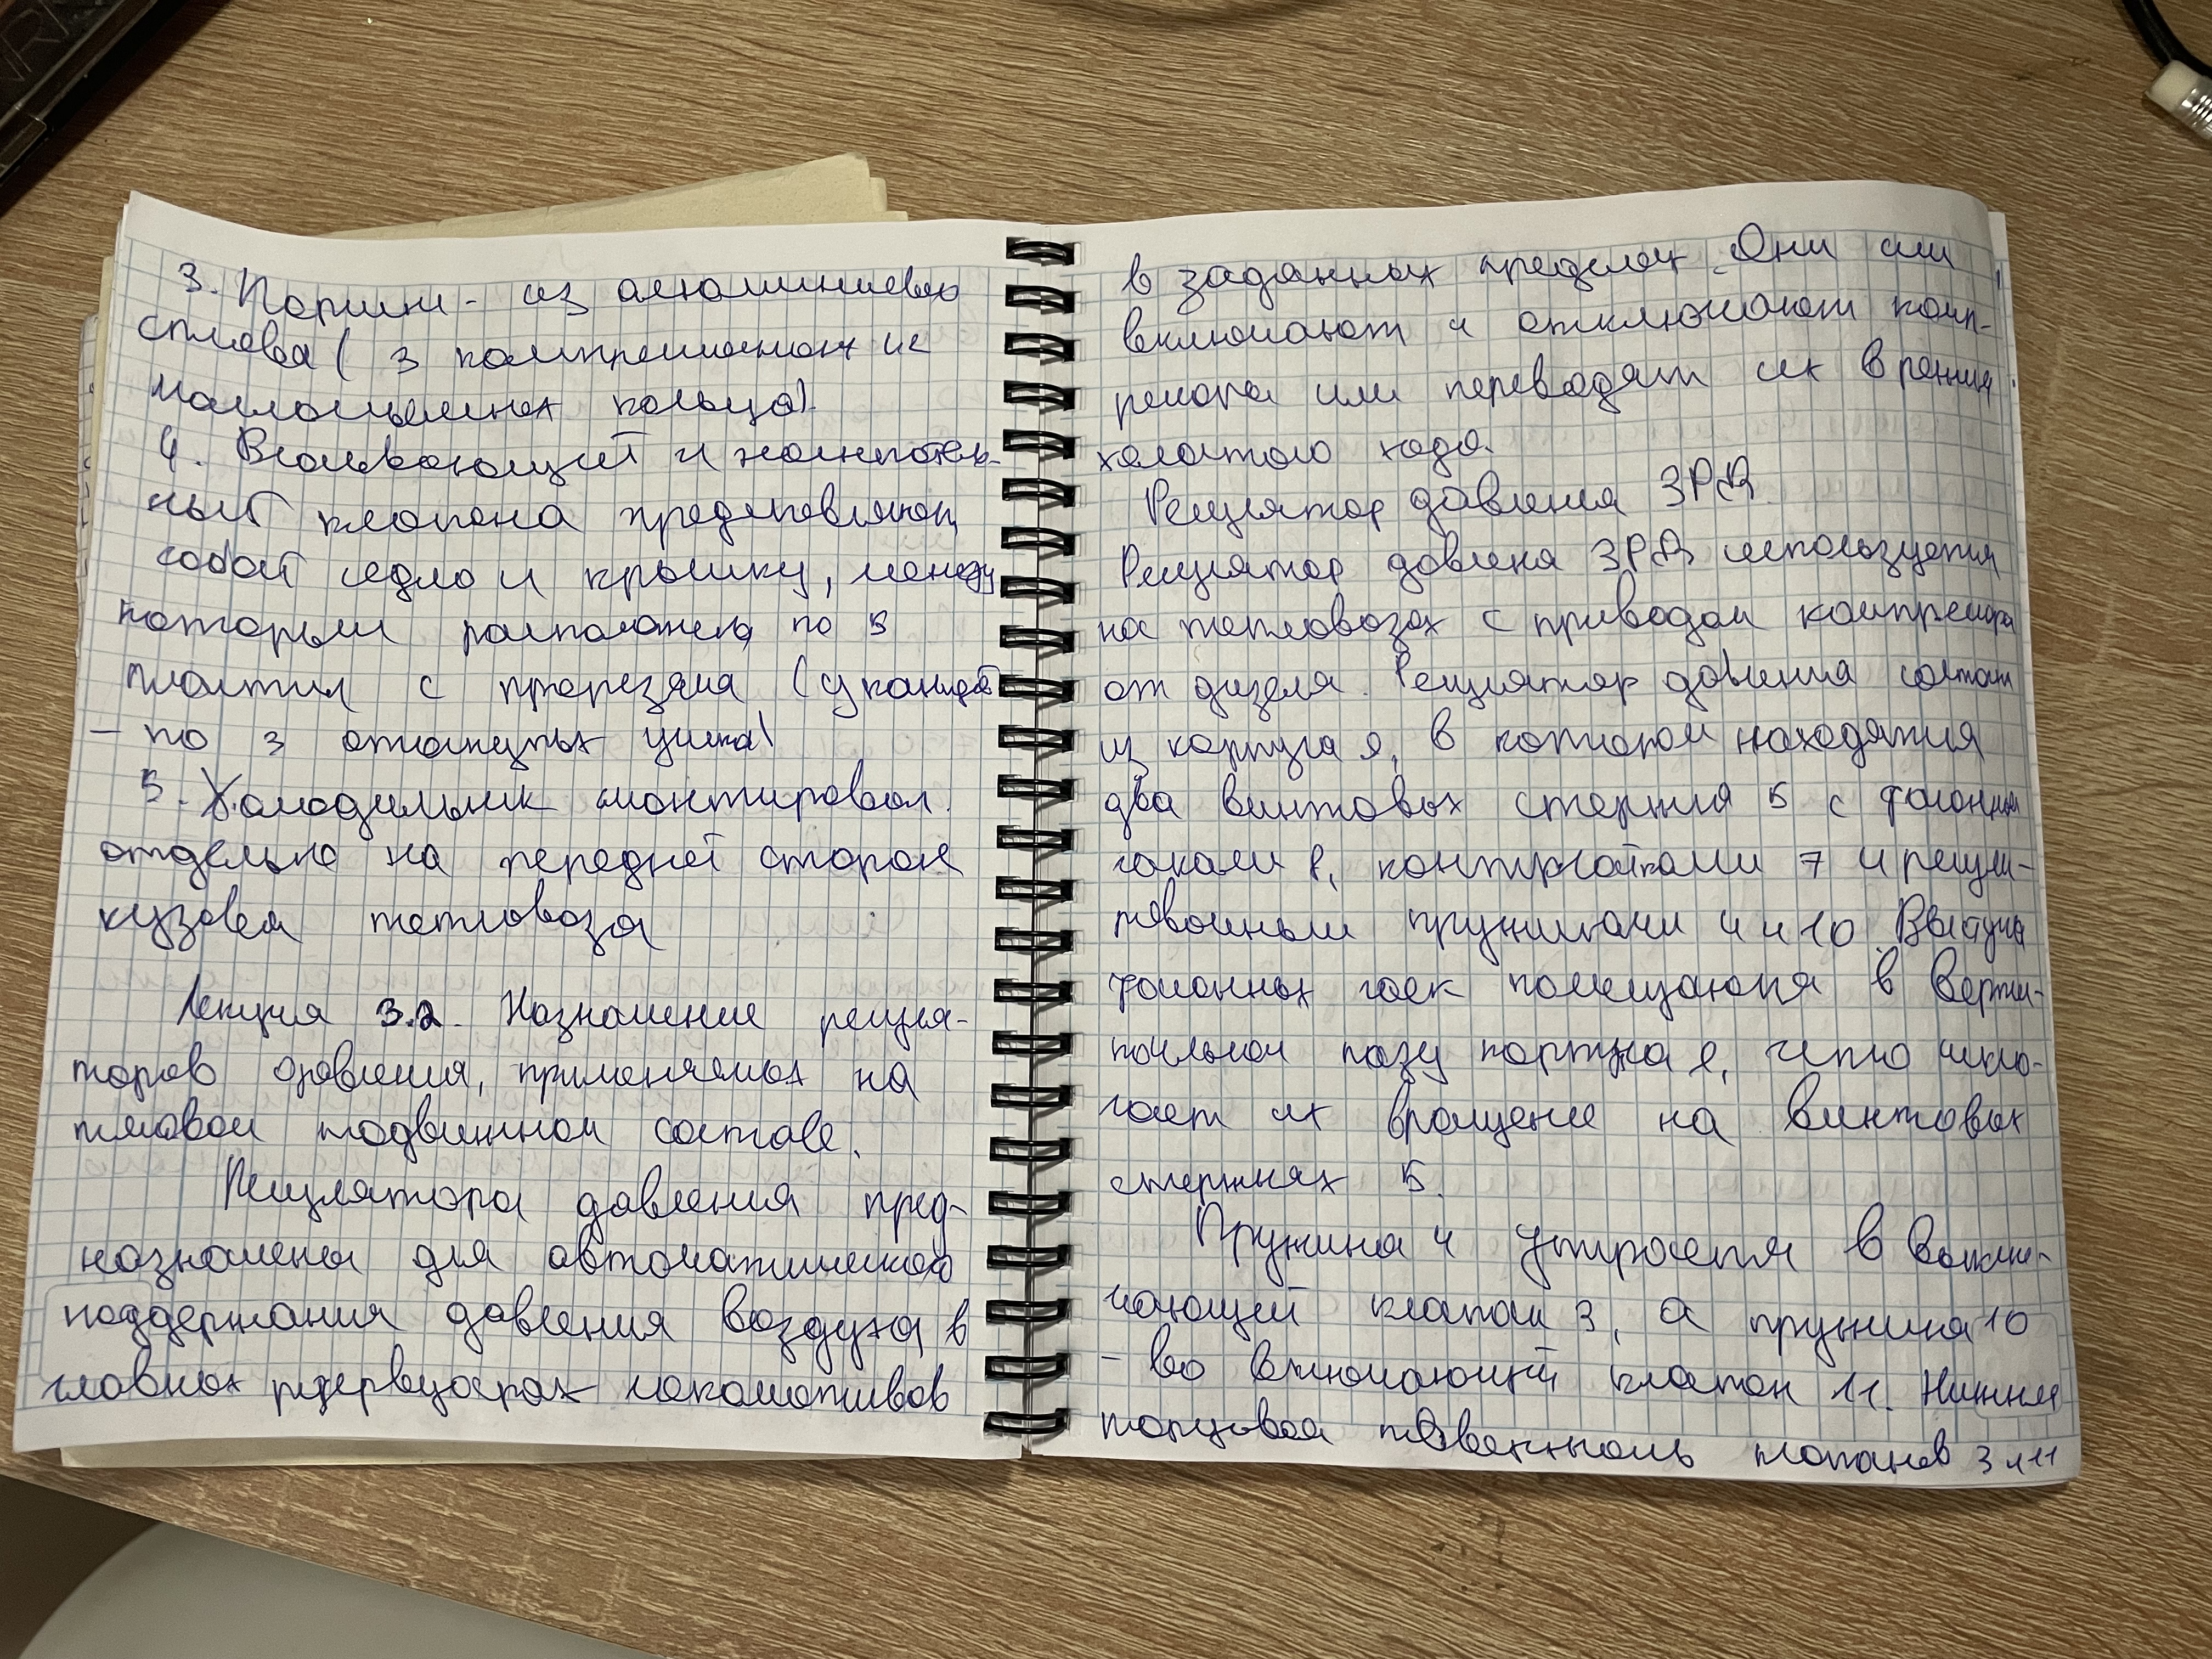 3. Поршни - из алюминиевого
сплава ( 3 компрессионных и 2
маслосъемных кольца).
4. Всасывающий и нагнетатель-
ный клапана представляют
собой седло и крышку, между
которым расположены по 5
пластин с прорезями (у каждой
- по 3 отогнутых ушка)
5. Холодильник смонтирован
отдельно на передней стороне
кузова тепловоза
Лекция 3.2. Назначение регуля-
торов давления, применяемых на
тяговом подвижном составе.
Регулятора давления пред-
назначены для автоматического
поддержания давления воздуха в
главных резервуарах локомотивов
в заданных пределах. Они или
включают и отключают комп-
ресора или переводят их в режим
холостого хода.
Регулятор давления ЗРД
Регулятор давлена ЗРД используется
на тепловозах с приводом компресора
от дизеля. Регулятор давления состоит
из корпуса 9, в котором находятся
два винтовых стержня 5 с фасонными
гаками 8, контргайками 7 и регули-
ровочными пружинами 4 и 10. Выступы
фасонных гаек помещаются в верти-
кальном пазу корпуса 9, что исклю-
чает их вращение на винтовых
стержнях 5.
Пружина 4 упирается в выклю-
чающий клапан 3, а пружина 10
- во включающий клапан 11. Нижняя
торцовая поверхность клапанов 3 и 11